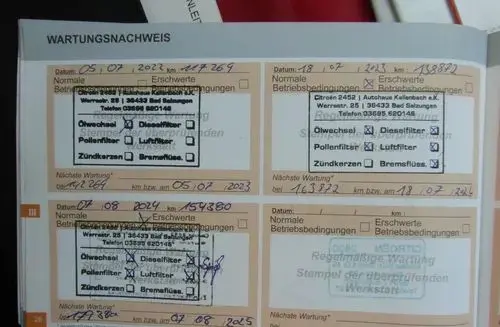 WARTUNGSNACHWEIS
Datum: 05 / 07 / 2022 km 117269
Normale Betriebsbedingungen
Erschwerte Betriebsbedingungen
Citroën 2452 | Autohaus Kallenbach e.K.
Werrastr. 25 | 36433 Bad Salzungen
Telefon 03695 620146
Regelmäßige Wartung
Stempel der überprüfenden
Werkstatt
Ölwechsel Dieselfilter
Pollenfilter Luftfilter
Zündkerzen Bremsflüss.
Nächste Wartung*
bei km bzw. am 05 / 07 / 2023
Datum: 18 / 07 / 2023 km 138872
Normale Betriebsbedingungen
Erschwerte Betriebsbedingungen
Citroën 2452 | Autohaus Kallenbach e.K.
Werrastr. 25 | 36433 Bad Salzungen
Telefon 03695 620146
Regelmäßige Wartung
Stempel der überprüfenden
Werkstatt
Ölwechsel Dieselfilter
Pollenfilter Luftfilter
Zündkerzen Bremsflüss.
Nächste Wartung*
bei 163872 km bzw. am 18 / 07 / 2024
07 / 08 / 2024 km 154380
Normale Betriebsbedingungen
Erschwerte Betriebsbedingungen
Werrastr. 25 | 36433 Bad Salzungen
Telefon 03695 620146
Ölwechsel Dieselfilter
Pollenfilter Luftfilter
Zündkerzen Bremsflüss.
Nächste Wartung*
bei km bzw. am 07 / 08 / 2025
Datum: / / km
Normale Betriebsbedingungen
Erschwerte Betriebsbedingungen
Regelmäßige Wartung
Stempel der überprüfenden
Werkstatt
Nächste Wartung*
bei km bzw. am / /
III